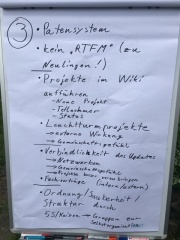 3
• Patensystem
• kein "RTFM" (zu
Neulingen!)
• Projekte im Wiki
aufführen
- Name Projekt
- Teilnehmer
- Status
• Leuchtturmprojekte
→ externe Wirkung
→ Gemeinschaftsgefühl
• Verbindlichkeit des Updates
→ Netzwerken
→ Gemeinschaftsgefühl
→ Projekte voran bringen
• Fachvorträge (intern/extern)
• Ordnung/Sauberkeit/
Struktur durch
5S/Kaizen → Gruppen zur
Selbstorganisation